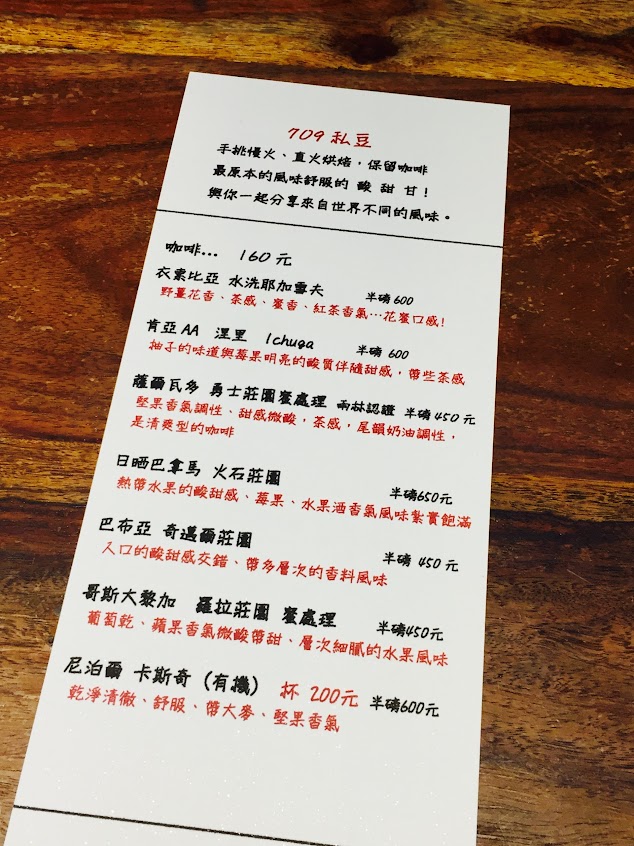 709 私豆
手挑慢火、直火烘焙，保留咖啡
最原本的風味舒服的 酸 甜 甘！
與你一起分享來自世界不同的風味。
咖啡… 160元
衣索比亞 水洗耶加雪夫 半磅 600
野薑花香、茶感、蜜香、紅茶香氣…花蜜口感！
肯亞AA 涅里 Ichuga 半磅 600
柚子的味道與莓果明亮的酸質伴隨甜感，帶些茶感
薩爾瓦多 勇士莊園蜜處理 雨林認證 半磅 450元
堅果香氣調性、甜感微酸，茶感，尾韻奶油調性，
是清爽型的咖啡
日晒巴拿馬 火石莊園 半磅650元
熱帶水果的酸甜感、莓果、水果酒香氣風味紮實飽滿
巴布亞 奇邁爾莊園 半磅 450元
入口的酸甜感交錯、帶多層次的香料風味
哥斯大黎加 羅拉莊園 蜜處理 半磅450元
葡萄乾、蘋果香氣微酸帶甜、層次細膩的水果風味
尼泊爾 卡斯奇（有機） 杯 200元 半磅600元
乾淨清徹、舒服、帶大麥、堅果香氣